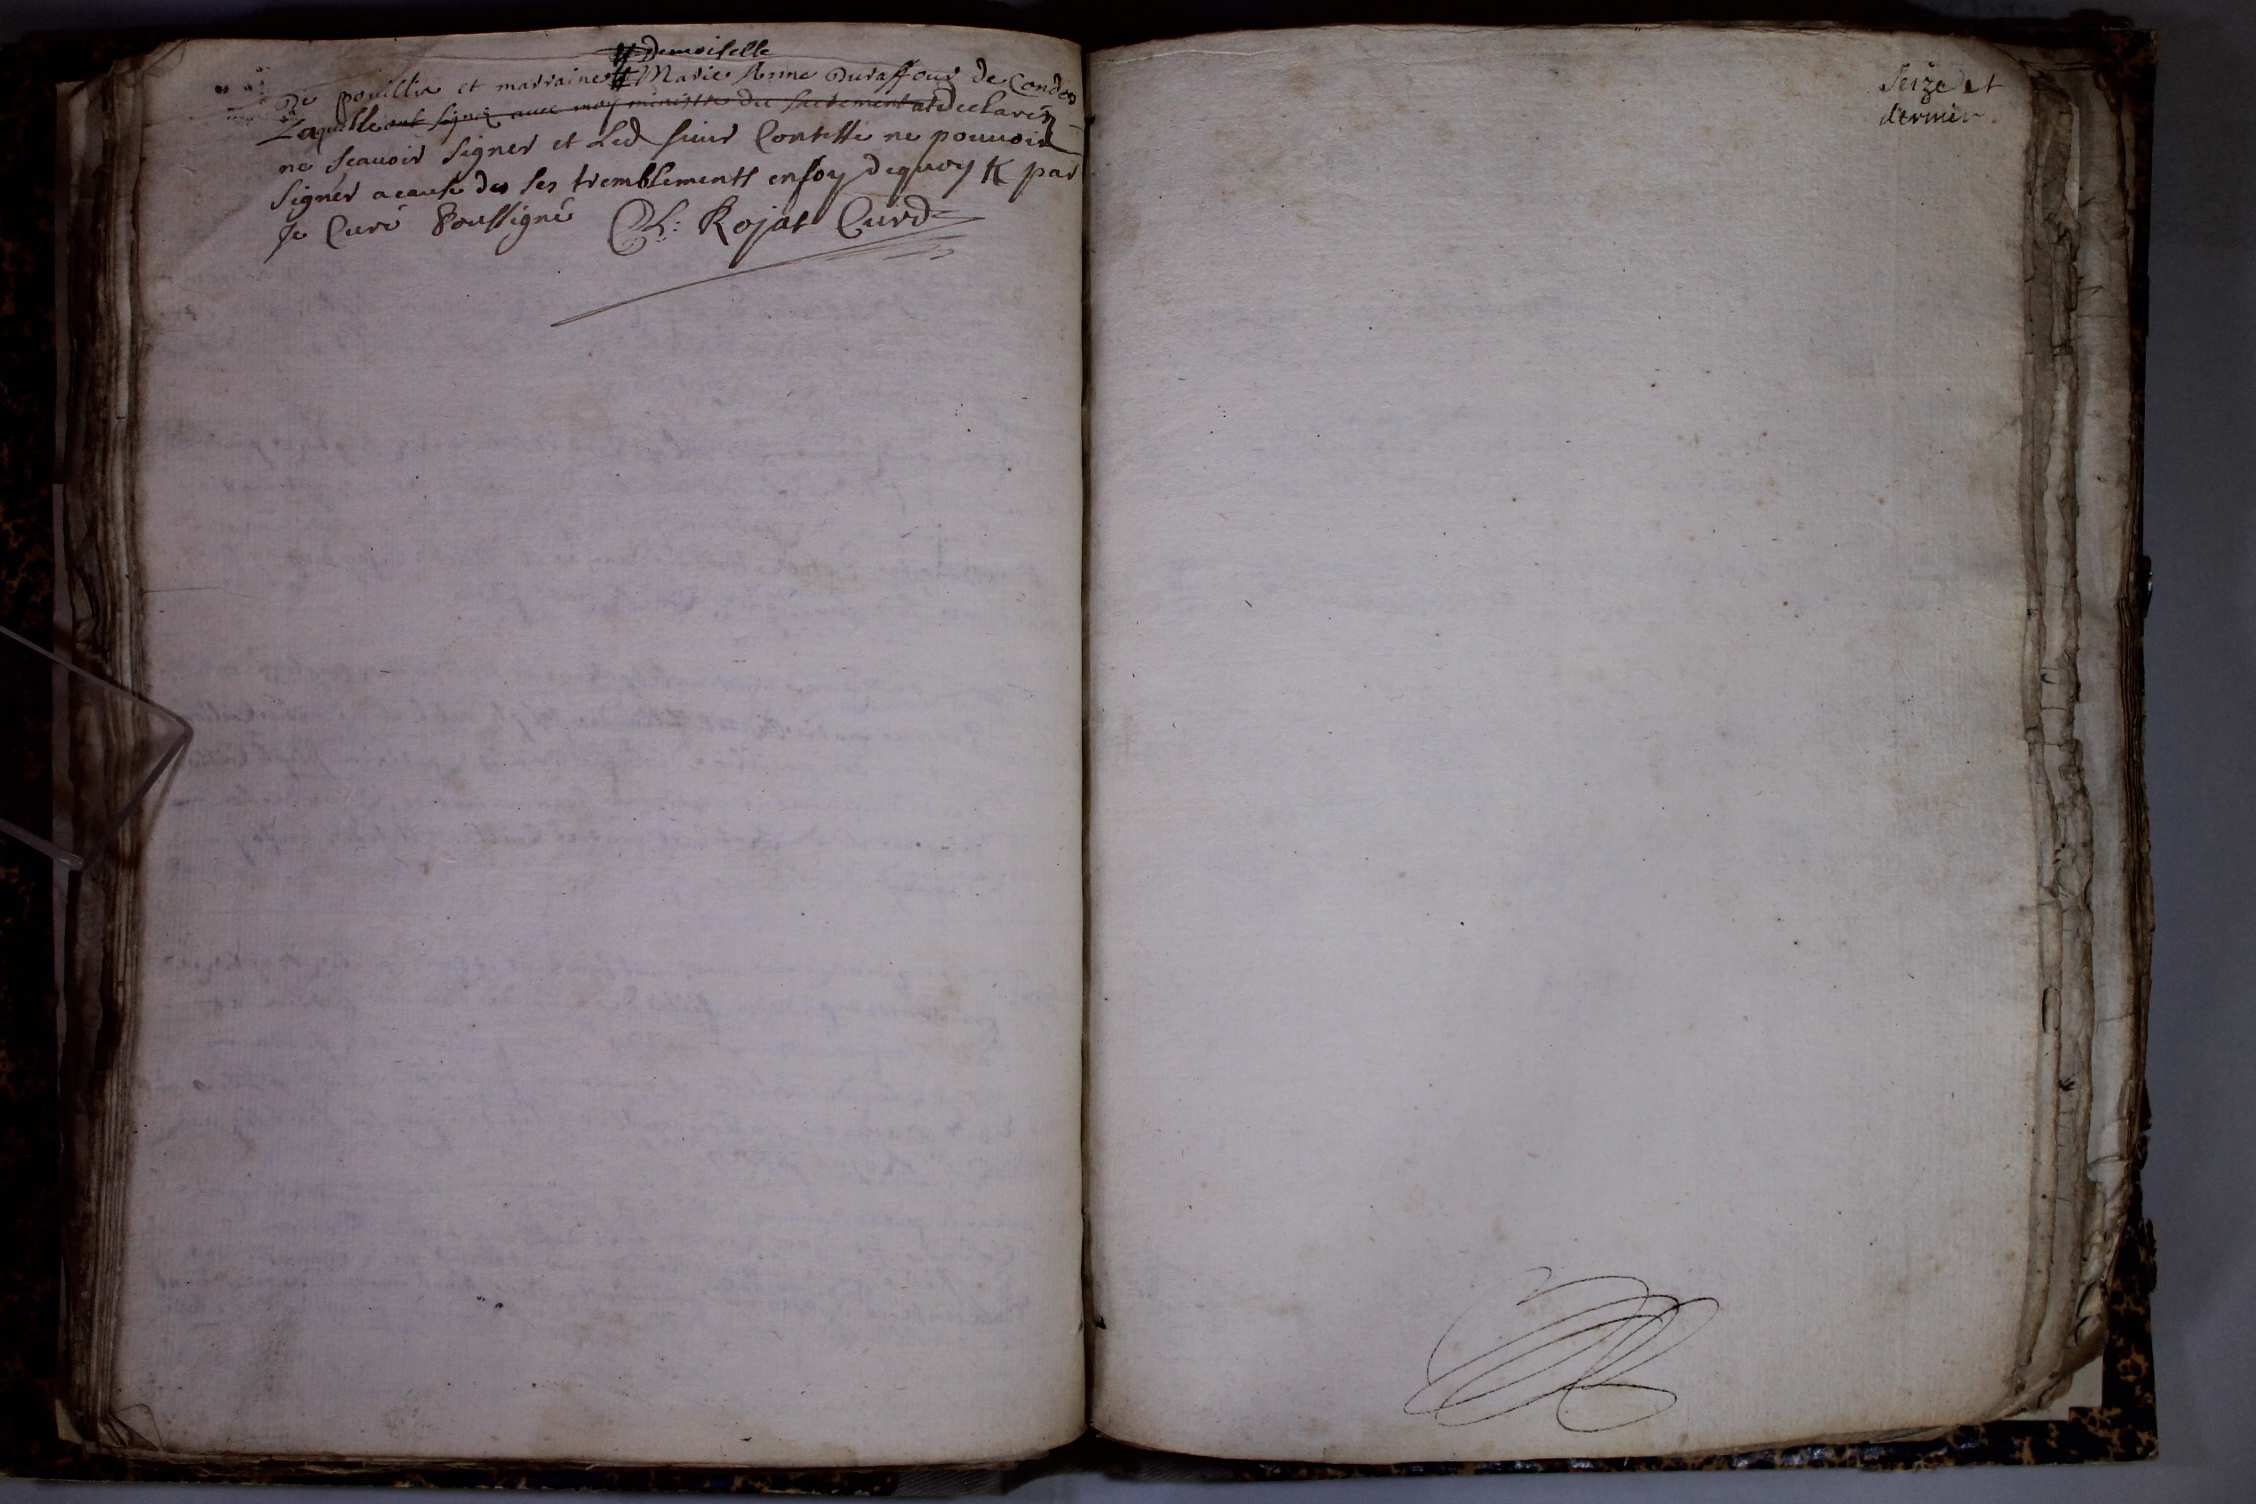 # Demoiselle
De pouillia et marraine # Marie Anne Duraffour de Condes
Laquelle ont signéz avec moy ministre du sacrement at declarés
ne scavoir signer et Led sieur Contessé ne pouvoir
signer a cause des ses tremblements en foy de quoy par
Je Curé Soussigné Ch: Rojat Curé
Seize et
dernier.